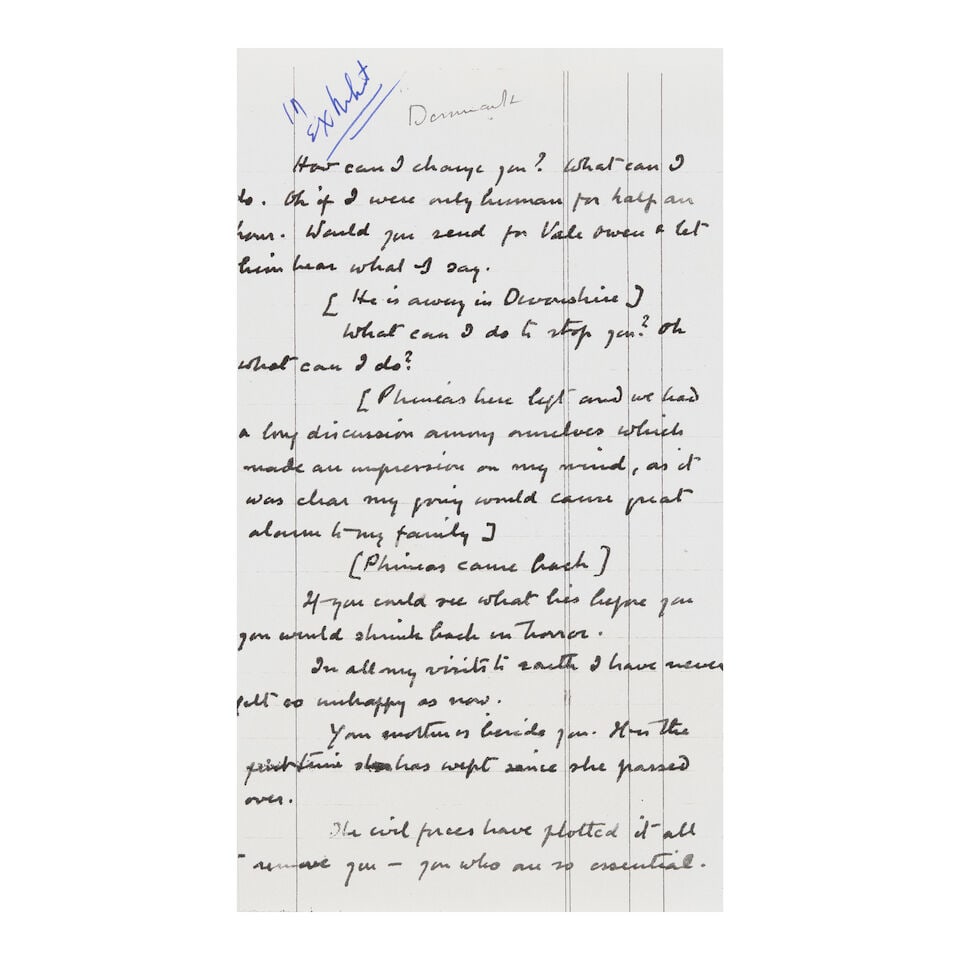 in
Exhibit
Denmark
How can I change you? What can I
do. Oh if I were only human for half an
hour. Would you send for Vale Owen & let
him hear what I say.
[ He is away in Devonshire ]
What can I do to stop you? Oh
what can I do?
[ Phineas here left and we had
a long discussion among ourselves which
made an impression on my mind, as it
was clear my going would cause great
alarm to my family ]
[Phineas came back]
If you could see what lies before you
you would shrink back in horror.
In all my visits to earth I have never
felt so unhappy as now.
Your mother is beside you. It is the
first time she has wept since she passed
over.
The evil forces have plotted it all
to remove you — you who are so essential.